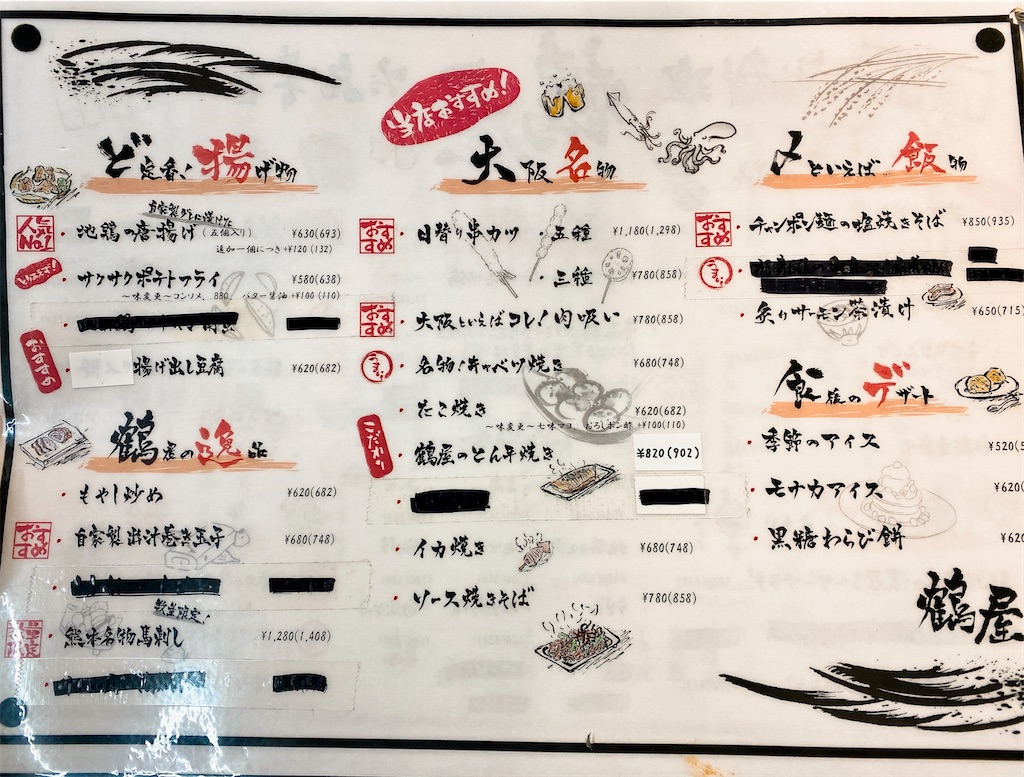 ど定番!揚げ物
自家製ダレに漬けた
人気No.1
・地鶏の唐揚げ(五個入り) ¥630(693)
追加一個につき+¥120(132)
とりあえず!
・サクサクポテトフライ ¥580(638)
〜味変更〜コンソメ、BBQ、バター醤油+¥100(110)
おすすめ
揚げ出し豆腐 ¥620(682)
鶴屋の逸品
・もやし炒め ¥620(682)
おすすめ
・自家製出汁巻き玉子 ¥680(748)
数量限定!
・熊本名物馬刺し ¥1,280(1,408)
当店おすすめ!
大阪名物
おすすめ
・日替り串カツ ・五種 ¥1,180(1,298)
・三種 ¥780(858)
おすすめ
・大阪といえばコレ!肉吸い ¥780(858)
うまい
・名物!キャベツ焼き ¥680(748)
・たこ焼き ¥620(682)
〜味変更〜七味マヨ、おろしポン酢+¥100(110)
こだわり
・鶴屋のとん平焼き ¥820(902)
・イカ焼き ¥680(748)
・ソース焼きそば ¥780(858)
〆といえば飯物
おすすめ
・チャンポン麺の塩焼きそば ¥850(935)
うまい
・炙りサーモン茶漬け ¥650(715)
飯後のデザート
・季節のアイス ¥520(5
・モナカアイス ¥620(
・黒糖わらび餅 ¥620
鶴屋